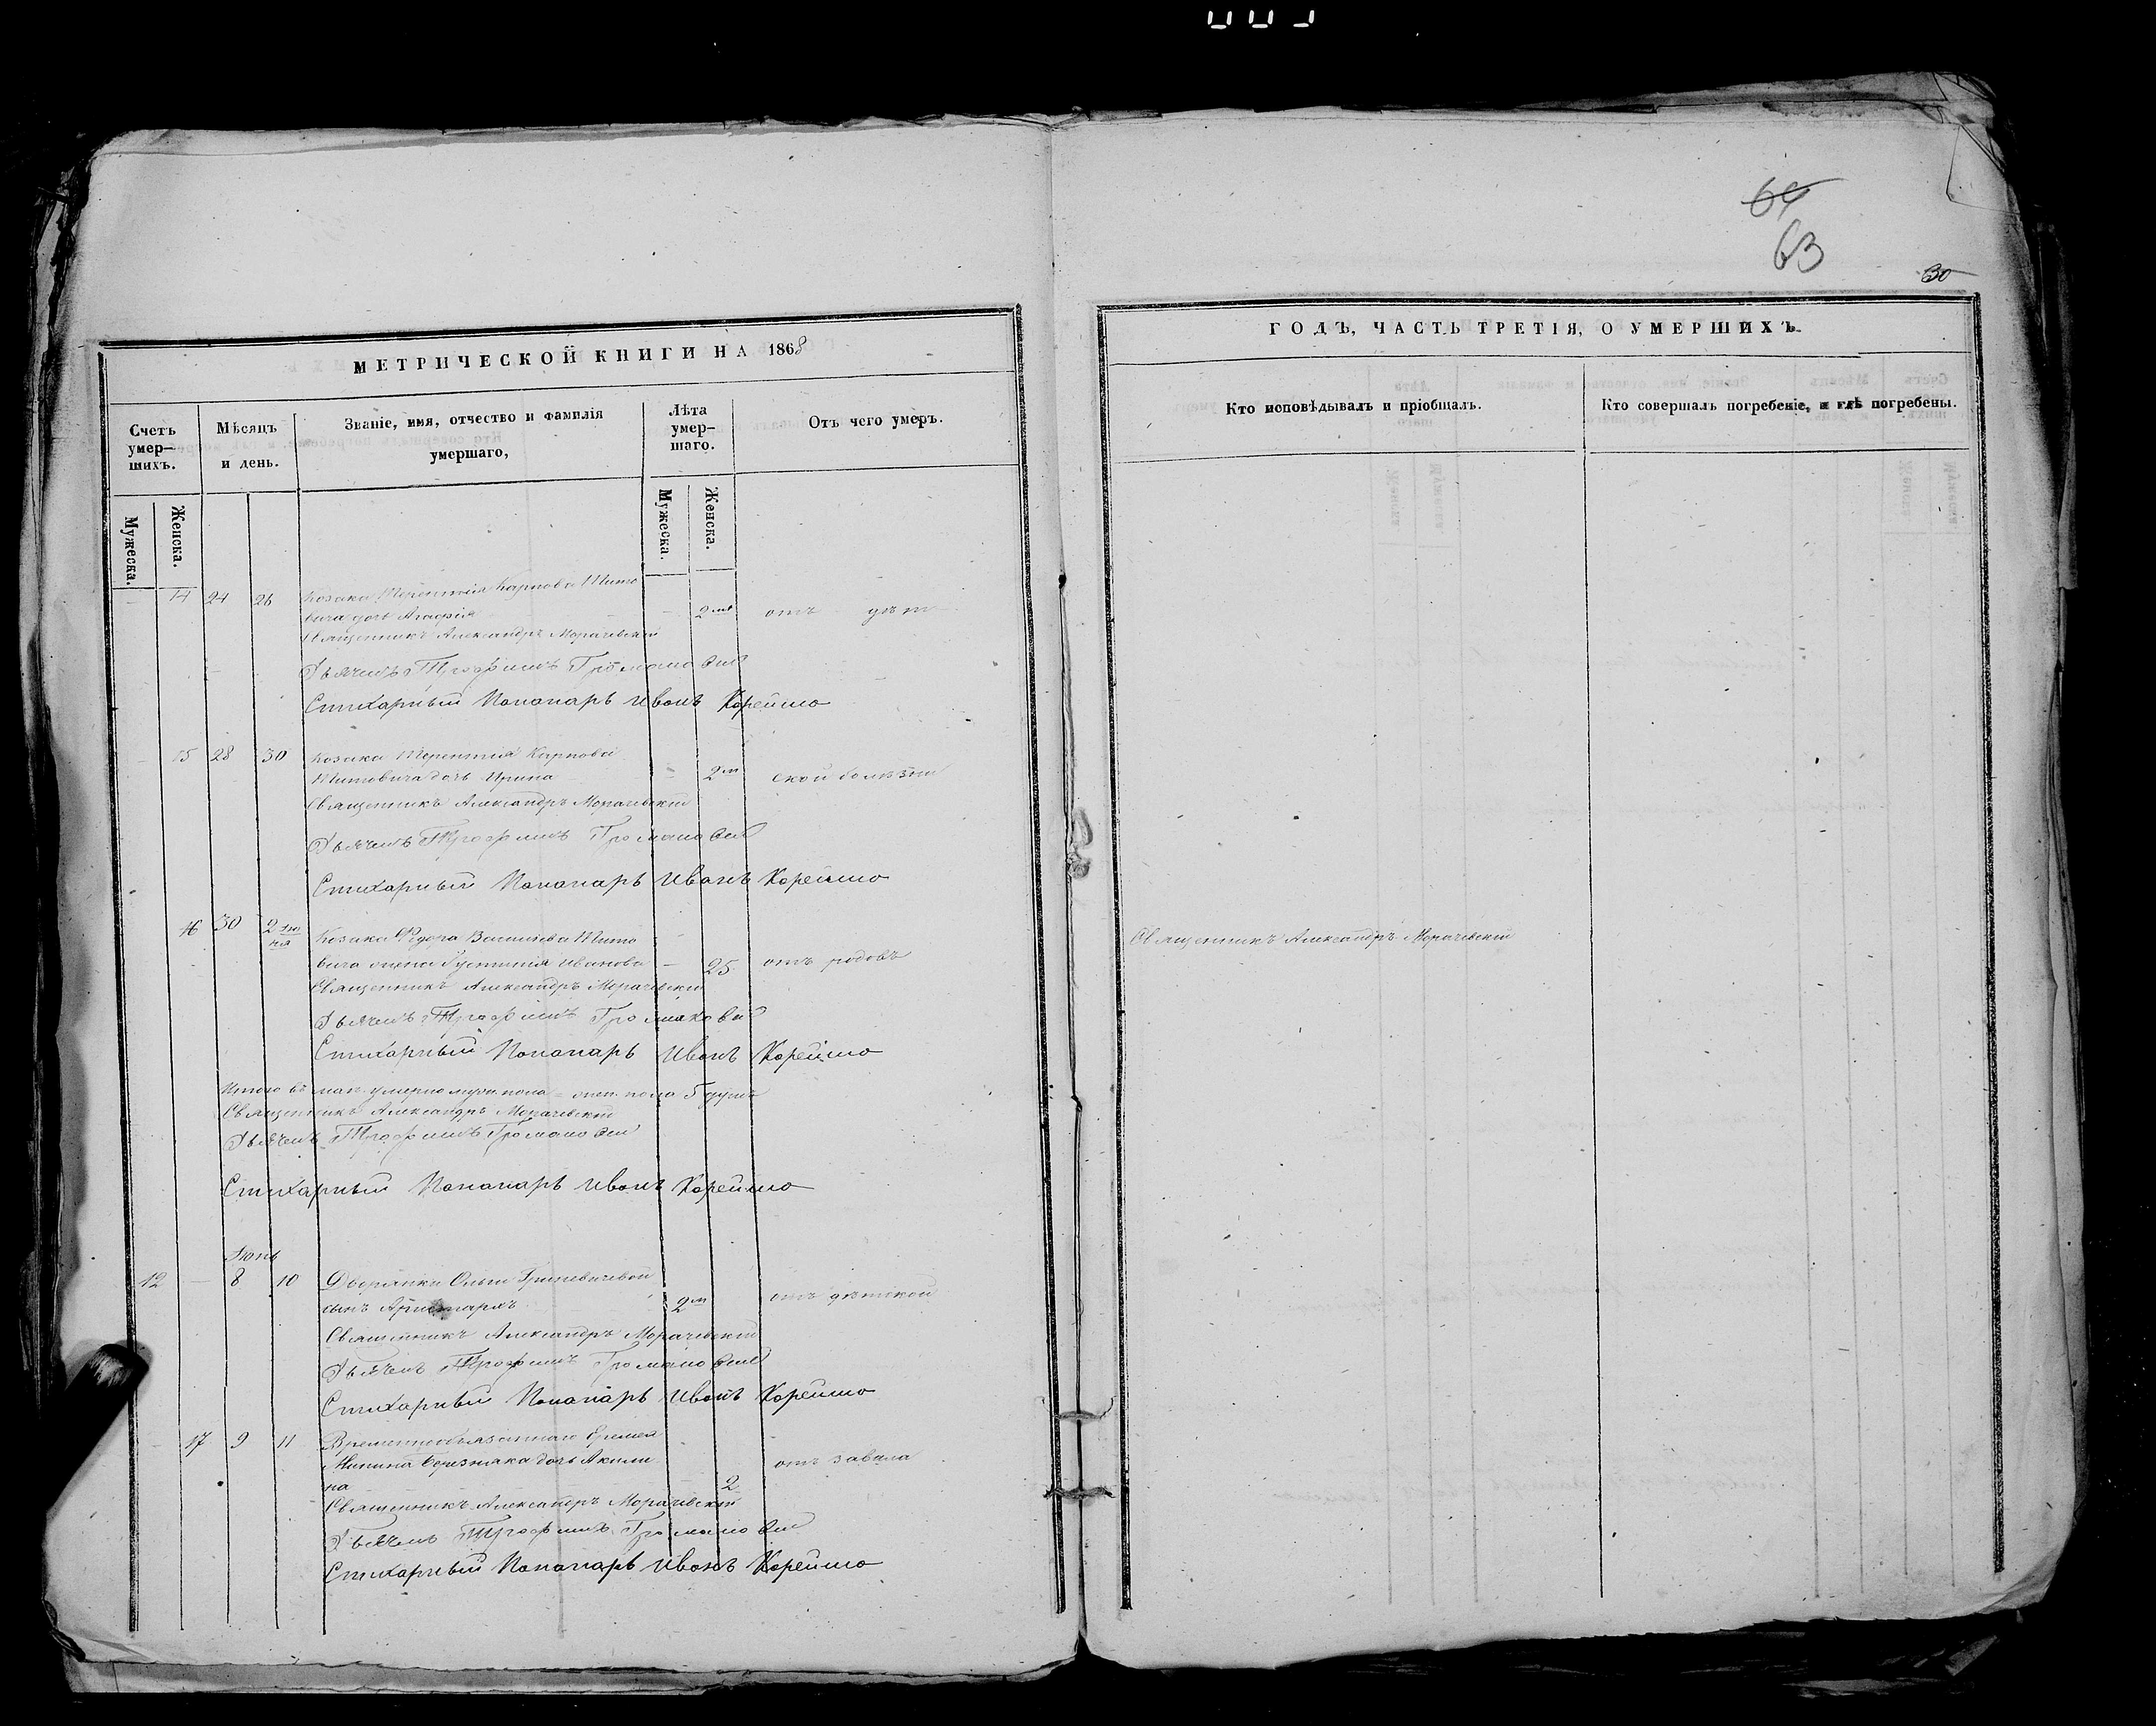 64
63
30
МЕТРИЧЕСКОЙ КНИГИ НА 1868
Счетъ умер–шихъ.
Мѣсяцъ и день.
Званіе, имя, отчество и фамилія умершаго,
Лѣта умер–шаго.
Отъ чего умеръ.
Мужеска.
Женска.
Мужеска.
Женска.
14 24 26 Козака Терентія Карпова Тито
вича дочь Агафія 2 отъ дѣт
Священникъ Александръ Морачевскій
Дьячекъ Трофимъ Громаковскій
Стихарный Пономарь Иванъ Корейшо
15 28 30 Козака Терентія Карпова
Титовича дочь Ирина 2 м ской болѣзни
Священникъ Александръ Морачевскій
Дьячекъ Трофимъ
Стихарный Пономарь Иванъ Корейшо
16 30 2 Іюня Козака Федора Васильева Тито
вича жена Густинія Иванова 25 отъ родовъ
Священникъ Александръ Морачевскій
Дьячекъ Трофимъ
Стихарный Пономарь Иванъ Корейшо
Итого въ маѣ умерло муж. пола – жен. пола 5 душъ
Священникъ Александръ Морачевскій
Дьячекъ Трофимъ
Стихарный Пономарь Иванъ Корейшо
Іюнь
12 — 8 10 Дворянки Ольги Гриневичевой
сынъ Аристархъ 2 м отъ дѣтской
Священникъ Александръ Морачевскій
Дьячекъ Трофимъ
Стихарный Пономарь Иванъ Корейшо
17 9 11 Временнообязаннаго Еремея
Минина Березняка дочь Акили
на 2 отъ завала
Священникъ Александръ Морачевскій
Дьячекъ Трофимъ
Стихарный Пономарь Иванъ Корейшо
ГОДЪ, ЧАСТЬ ТРЕТІЯ, О УМЕРШИХЪ.
Кто исповѣдывалъ и пріобщалъ.
Кто совершалъ погребеніе, и гдѣ погребены.
Священникъ Александръ Морачевскій